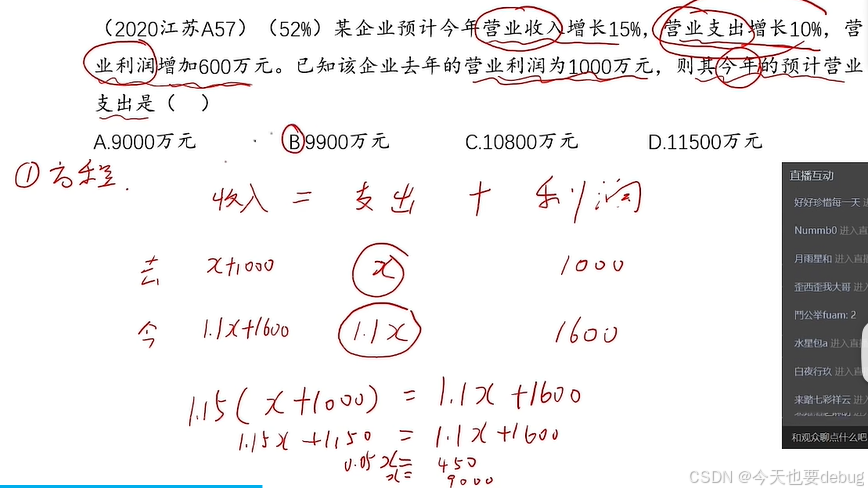 （2020江苏A57）（52%）某企业预计今年营业收入增长15%，营业支出增长10%，营
业利润增加600万元。已知该企业去年的营业利润为1000万元，则其今年的预计营业
支出是（ ）
A.9000万元 B.9900万元 C.10800万元 D.11500万元
①方程.
收入 = 支出 + 利润
去 x+1000 x 1000
今 1.1x+1600 1.1x 1600
1.15(x+1000) = 1.1x+1600
1.15x+1150 = 1.1x+1600
0.05x= 450
x= 9000
直播互动
好好珍惜每一天 进
Nummb0 进入直
月雨星和 进入直播
歪西歪我大哥 进入
鬥公举fuam: 2
水星包a 进入直播
白夜行玖 进入直
来踏七彩祥云 进入
和观众聊点什么吧
CSDN @今天也要debug